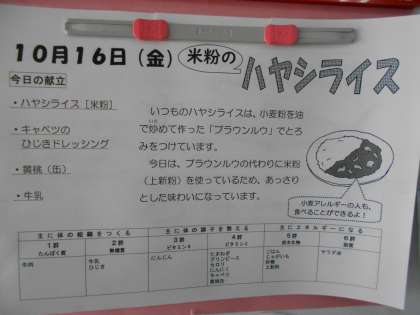 10月16日(金) 米粉の
ハヤシライス
今日の献立
・ハヤシライス[米粉]
・キャベツの
ひじきドレッシング
・黄桃(缶)
・牛乳
いつものハヤシライスは、小麦粉を油
で炒めて作った「ブラウンルウ」でとろ
みをつけています。
今日は、ブラウンルウの代わりに米粉
(上新粉)を使っているため、あっさり
とした味わいになっています。
小麦アレルギーの人も、
食べることができるよ!
主に体の組織をつくる 主に体の調子を整える 主にエネルギーになる
1群 2群 3群 4群 5群 6群
たんぱく質 無機質 ビタミンA ビタミンC 炭水化物 脂質
牛肉 牛乳 にんじん たまねぎ ごはん サラダ油
ひじき グリンピース じゃがいも
セロリ 砂糖
にんにく 上新粉
キャベツ
黄桃缶